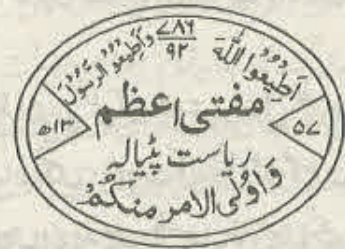 ۷۸۶
۹۲
اَطِیْعُوا اللّٰہَ وَاَطِیْعُوا الرَّسُوْلَ
مفتی اعظم
۵۷ ۱۳ھ
ریاست پٹیالہ
وَاُولِی الْاَمْرِ مِنْكُمْ